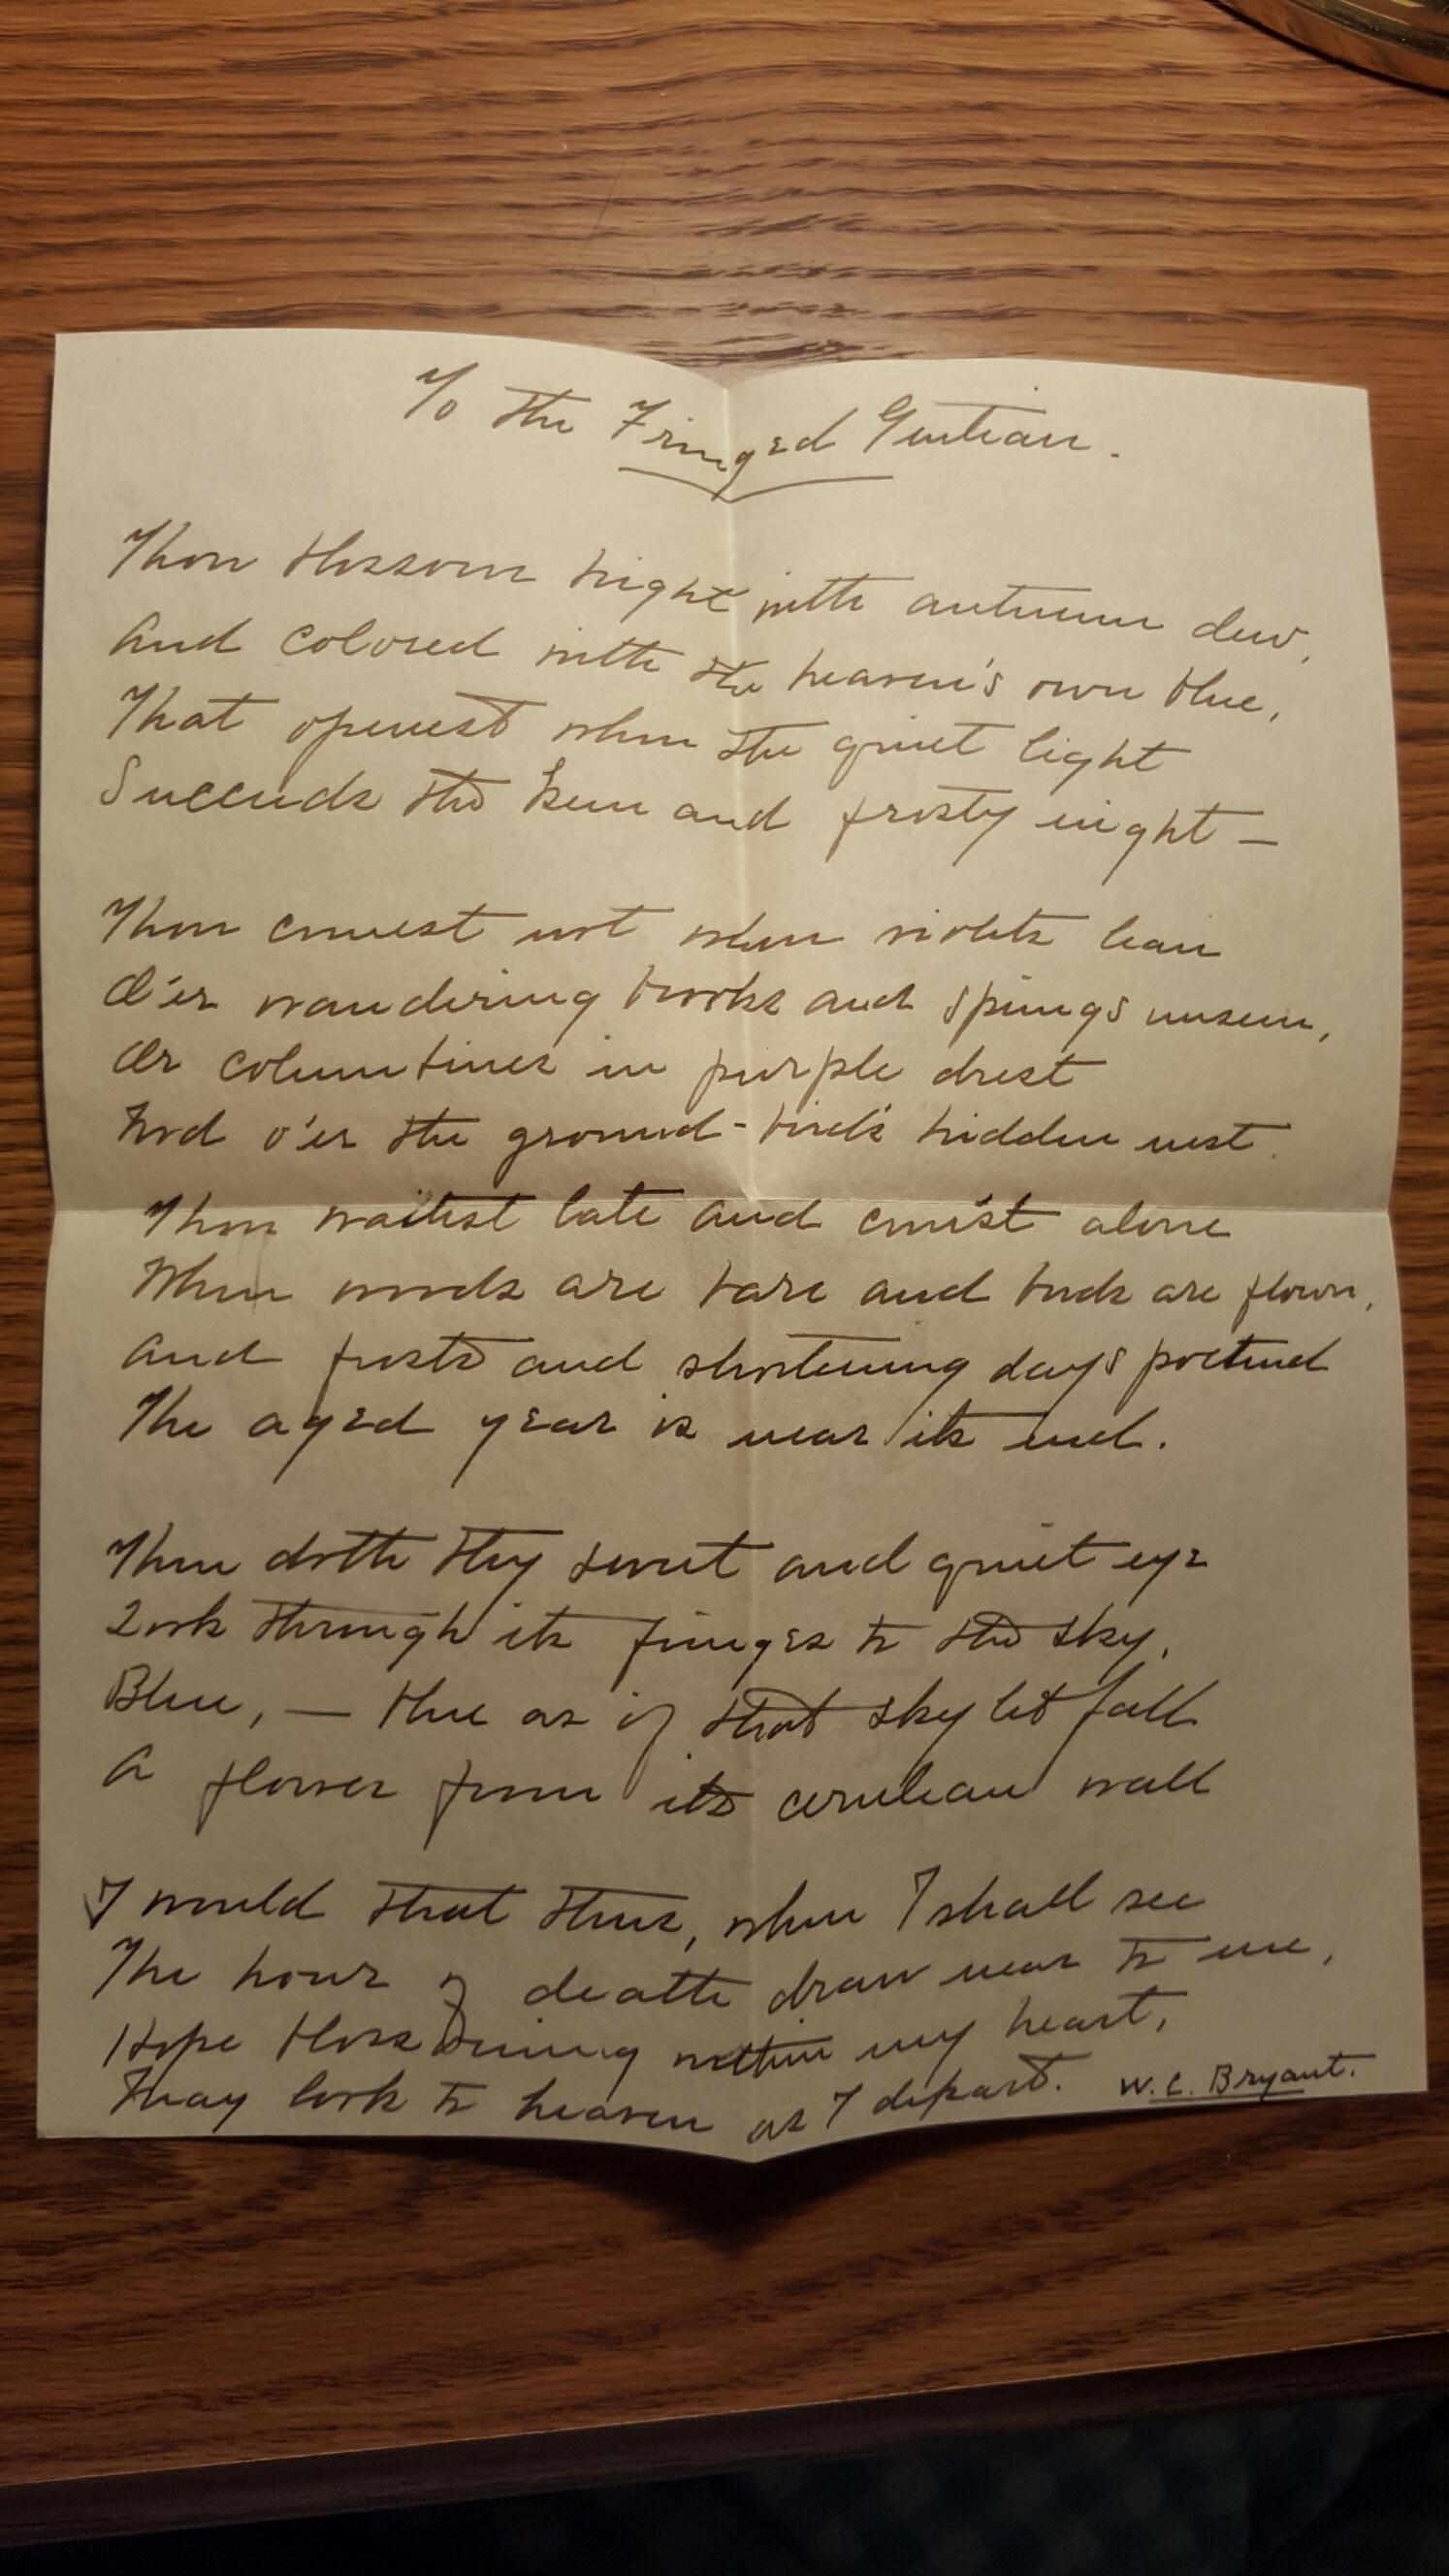 To the Fringed Gentian.
Thou blossom bright with autumn dew,
And colored with the heaven's own blue,
That openest when the quiet light
Succeeds the keen and frosty night –
Thou comest not when violets lean
O'er wandering brooks and springs unseen,
Or columbines in purple drest
Nod o'er the ground-bird's hidden nest.
Thou waitest late and com'st alone
When woods are bare and birds are flown,
And frosts and shortening days portend
The aged year is near its end.
Then doth thy sweet and quiet eye
Look through its fringes to the sky,
Blue, – blue as if that sky let fall
A flower from its cerulean wall
I would that thus, when I shall see
The hour of death draw near to me,
Hope blossoming within my heart,
May look to heaven as I depart. W.C. Bryant.